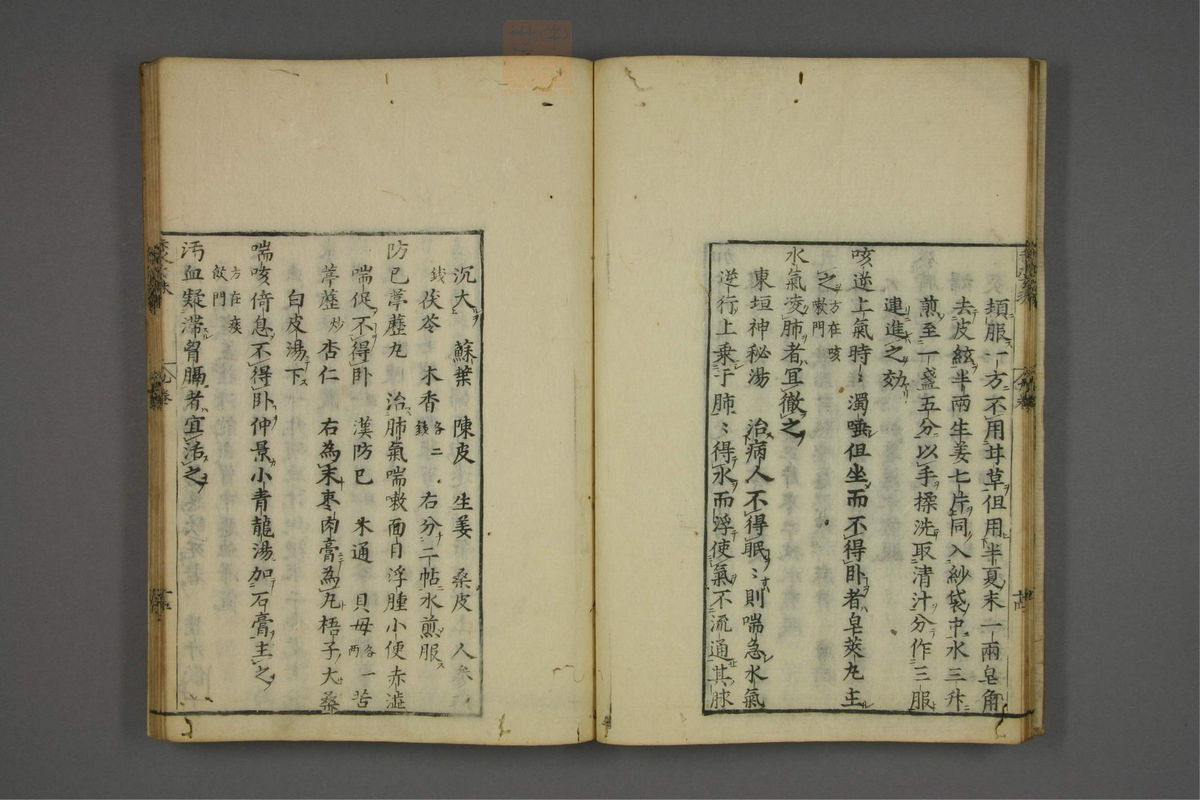 頓服一方不用甘草但用半夏末一兩皂角
去皮絃半兩生姜七片同入紗袋中水三升
煎至一盞五分以手揉洗取清汁分作三服
連進之効
咳逆上氣時〻濁唾但坐而不得卧者皂莢丸主
之方在咳嗽門
水氣凌肺者冝徹之
東垣神秘湯 治病人不得眠〻則喘急水氣
逆行上乗于肺〻得水而浮使氣不流通其脉
沉大 蘇葉 陳皮 生姜 桑皮 人參各五
錢 茯苓 木香各二錢 右分二帖水煎服
防已葶藶丸 治肺氣喘嗽面目浮腫小便赤澁
喘促不得卧 漢防已 木通 貝母各一兩 苦
葶藶炒 杏仁 右為末枣肉膏為丸梧子大桑
白皮湯下
喘咳倚息不得卧仲景小青龍湯加石膏主之
方在痰飲門
汚血凝滯胷膈者宜活之